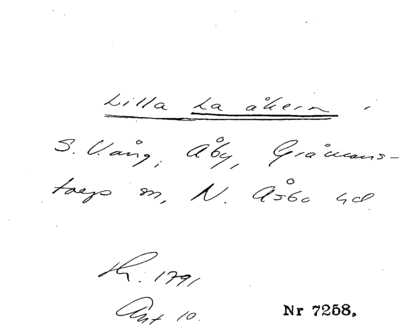 Lilla La åkern i
S. Vång, Åby, Gråmans-
torps sn, N. Åsbo hd
Th. 1791
Akt 10.
Nr 7258.